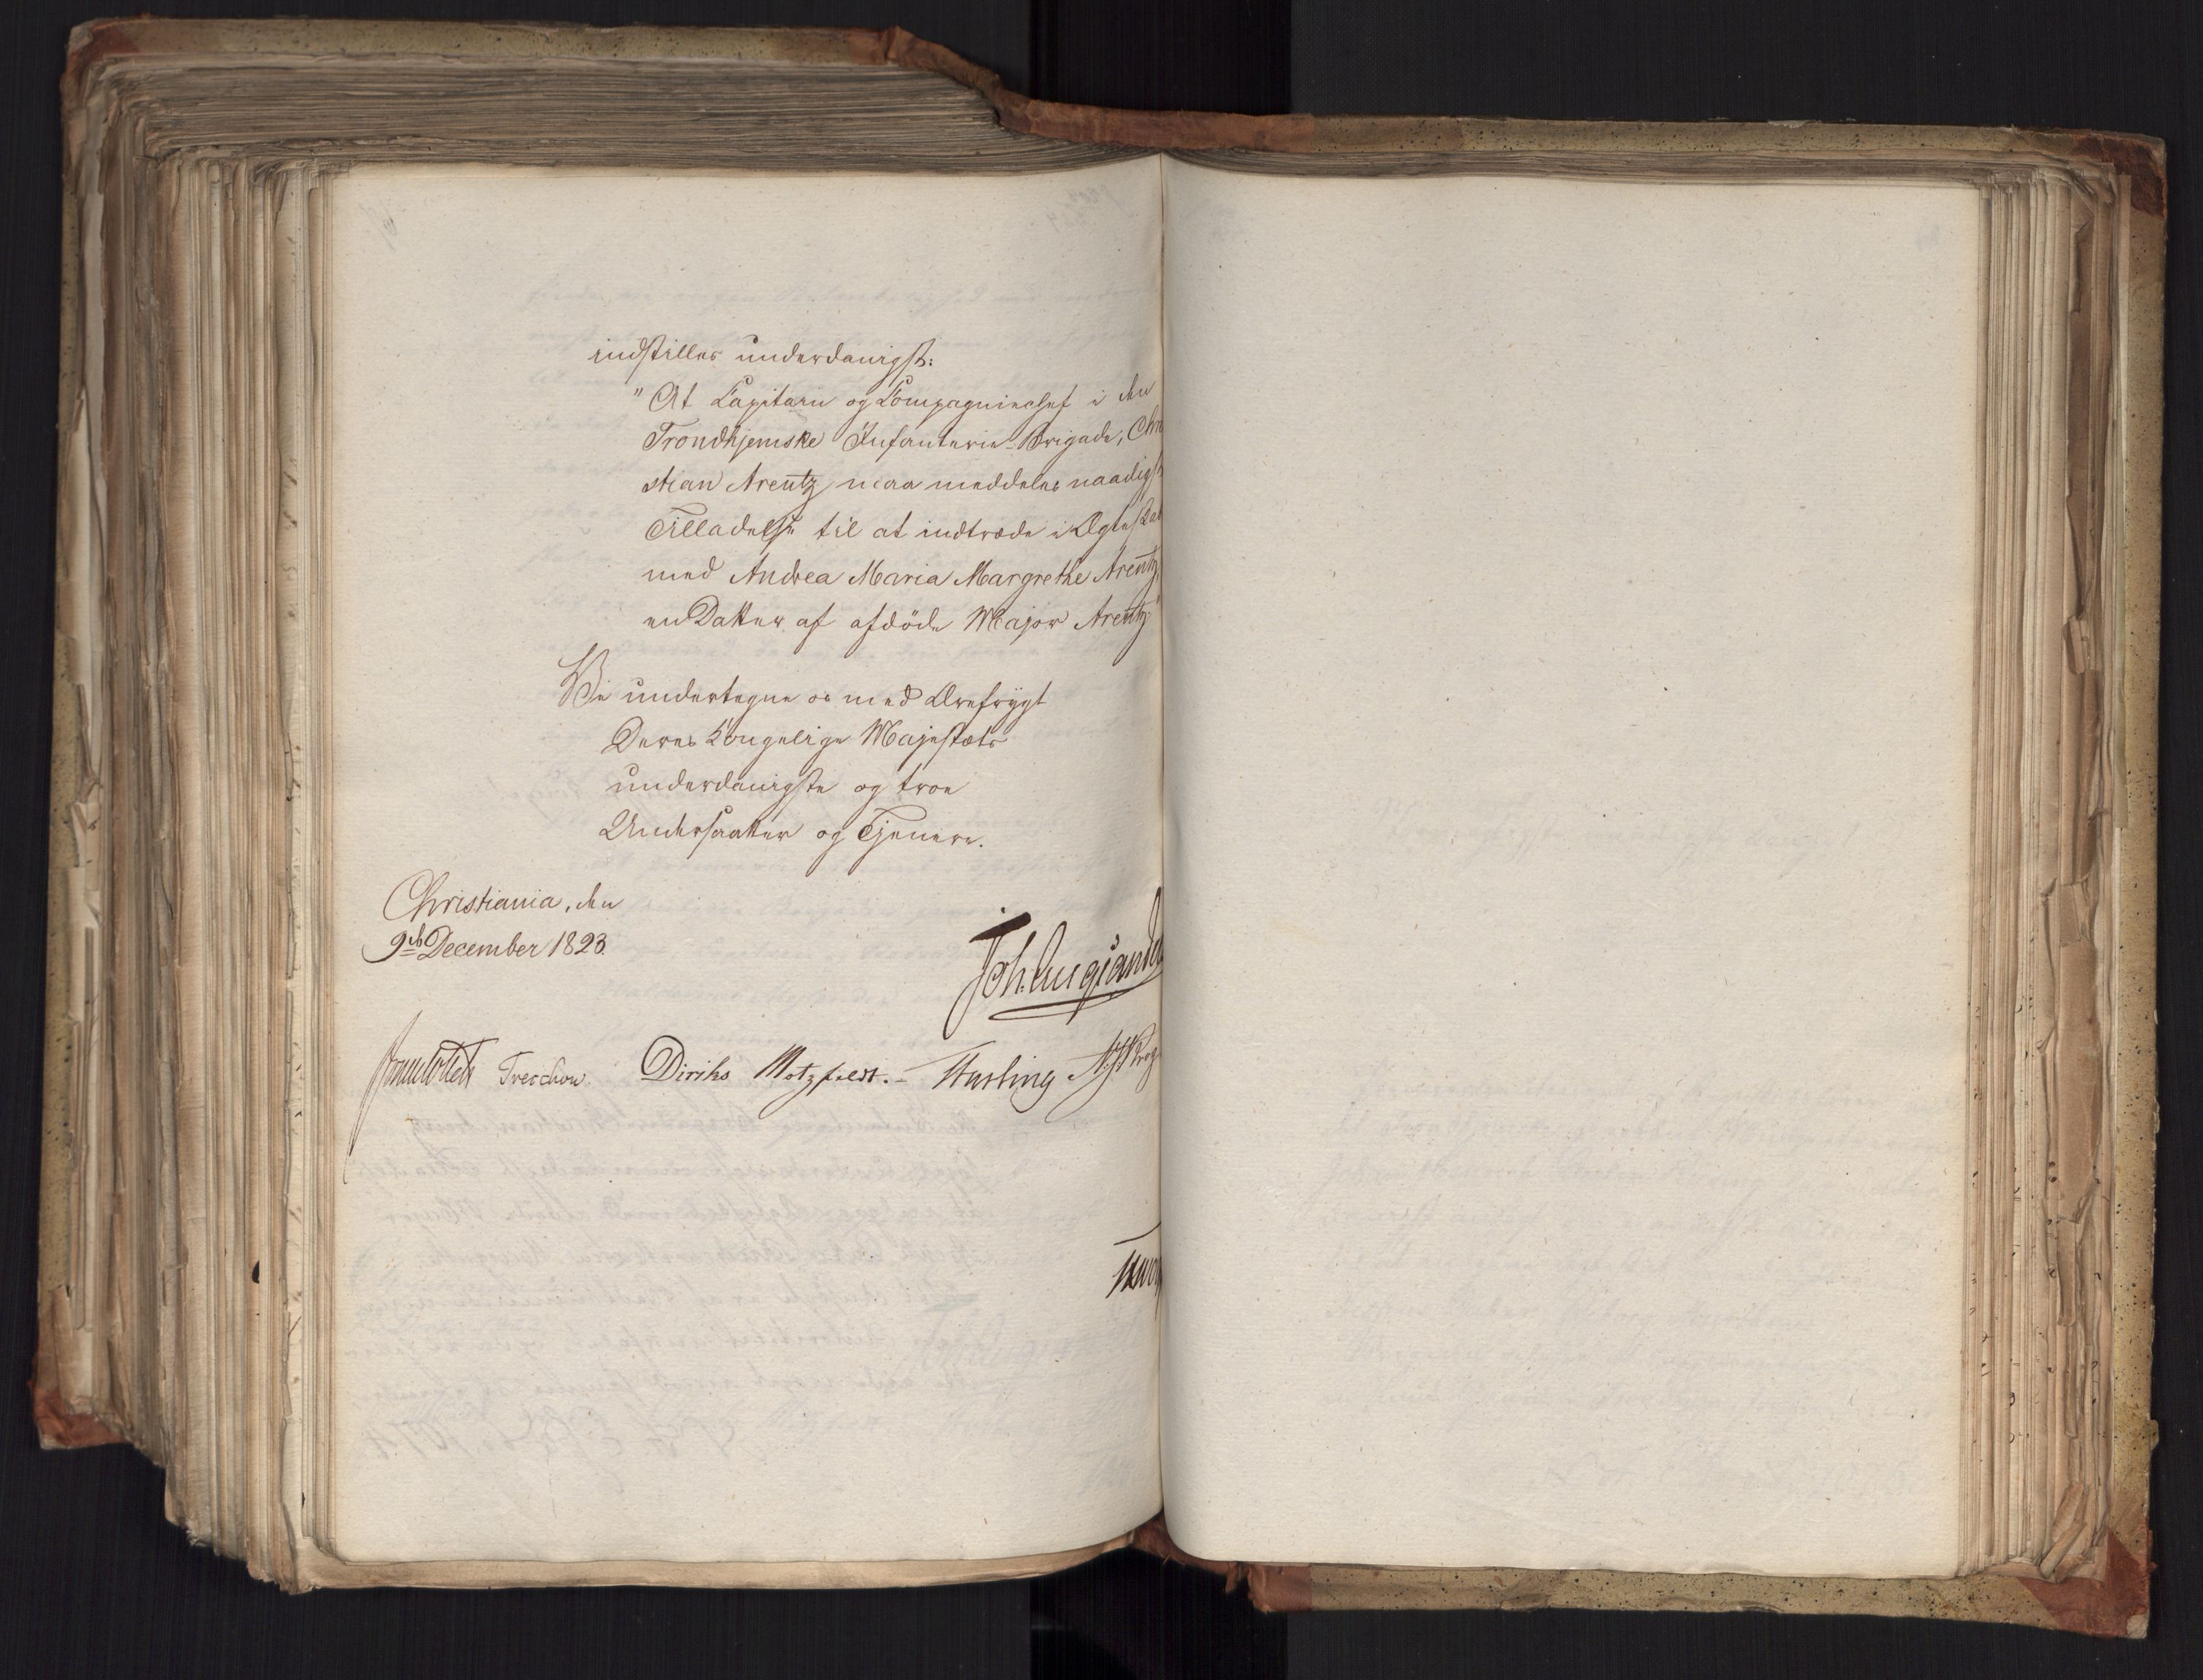 indstilles underdanigst:
"At Capitain og Compagniechef i den
Trondhjemske Infanterie-Brigade, Chri
stian Arentz, maa meddeles naadigst
Tilladelse til at indtræde i Ægteskab
med Andrea Maria Margrethe Arentz,
en Datter af afdöde Major Arentz"
Vi undertegne os med Ærefrygt
Deres Kongelige Majestæts
underdanigste og troe
Undersaatter og Tjenere.
Christiania, den
9de December 1823.
Joh. Aug. Sandel
Sommerhielm Treschow. Diriks Motzfeldt. - Fasting Krog